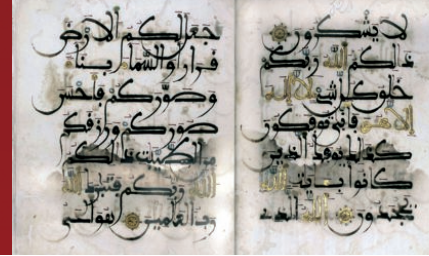 لا يشكرون
ذلكم الله ربكم
خلق كل شيء لا إله
إلا هو فأنى تؤفكون
كذلك يؤفك الذين
كانوا بآيت الله
يجحدون الله الذي
جعل لكم الأرض
قرارا والسماء بناء
وصوركم فأحسن
صوركم ورزقكم
من الطيبت ذلكم
الله ربكم فتبرك الله
رب العلمين هو الحي